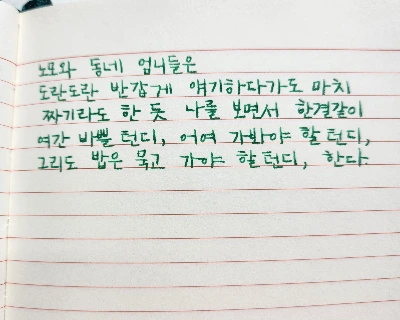 노모와 동네 엄니들은
도란도란 반갑게 얘기하다가도 마치
짜기라도 한 듯 나를 보면서 한결같이
여간 바쁠 턴디, 어여 가봐야 할 턴디,
그리도 밥은 묵고 가야 할 턴디, 한다.